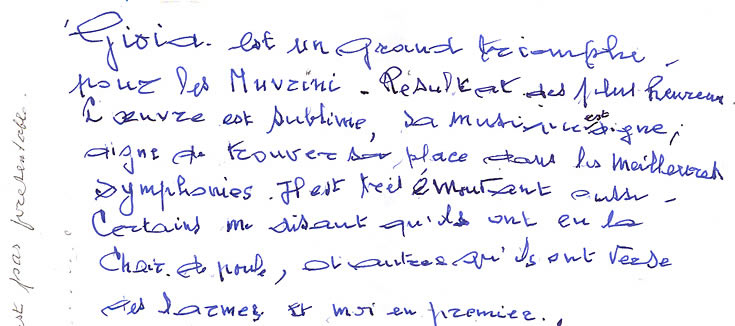 Gioia. est un grand triomphe -
pour les Muvrini - Résultat des plus heureux.
L'œuvre est sublime, sa musique est digne,
digne de trouver sa place dans les meilleures
symphonies. Il est très émouvant aussi -
Certains me disant qu'ils ont eu la
Chair de poule, d'autres qu'ils ont versé
des larmes et moi en premier.,
est pas présentable.